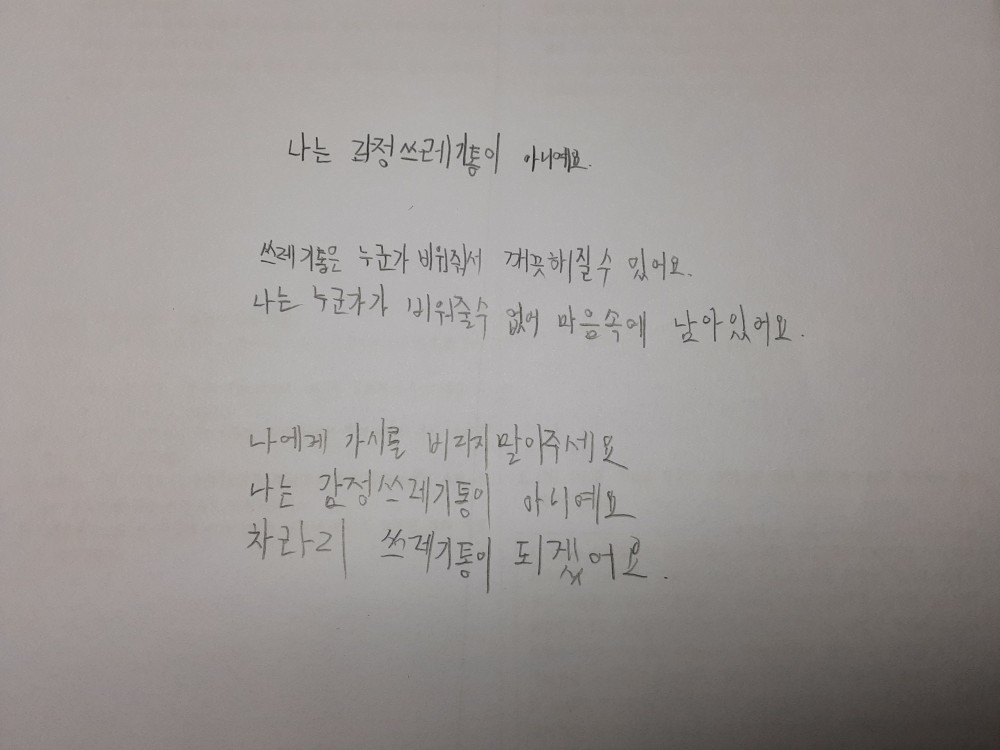 나는 감정쓰레기통이 아니예요.
쓰레기통은 누군가 비워줘서 깨끗해질 수 있어요.
나는 누군가가 비워줄수 없어 마음속에 남아있어요.
나에게 가시를 박지말아주세요
나는 감정쓰레기통이 아니예요
차라리 쓰레기통이 되겠어요.